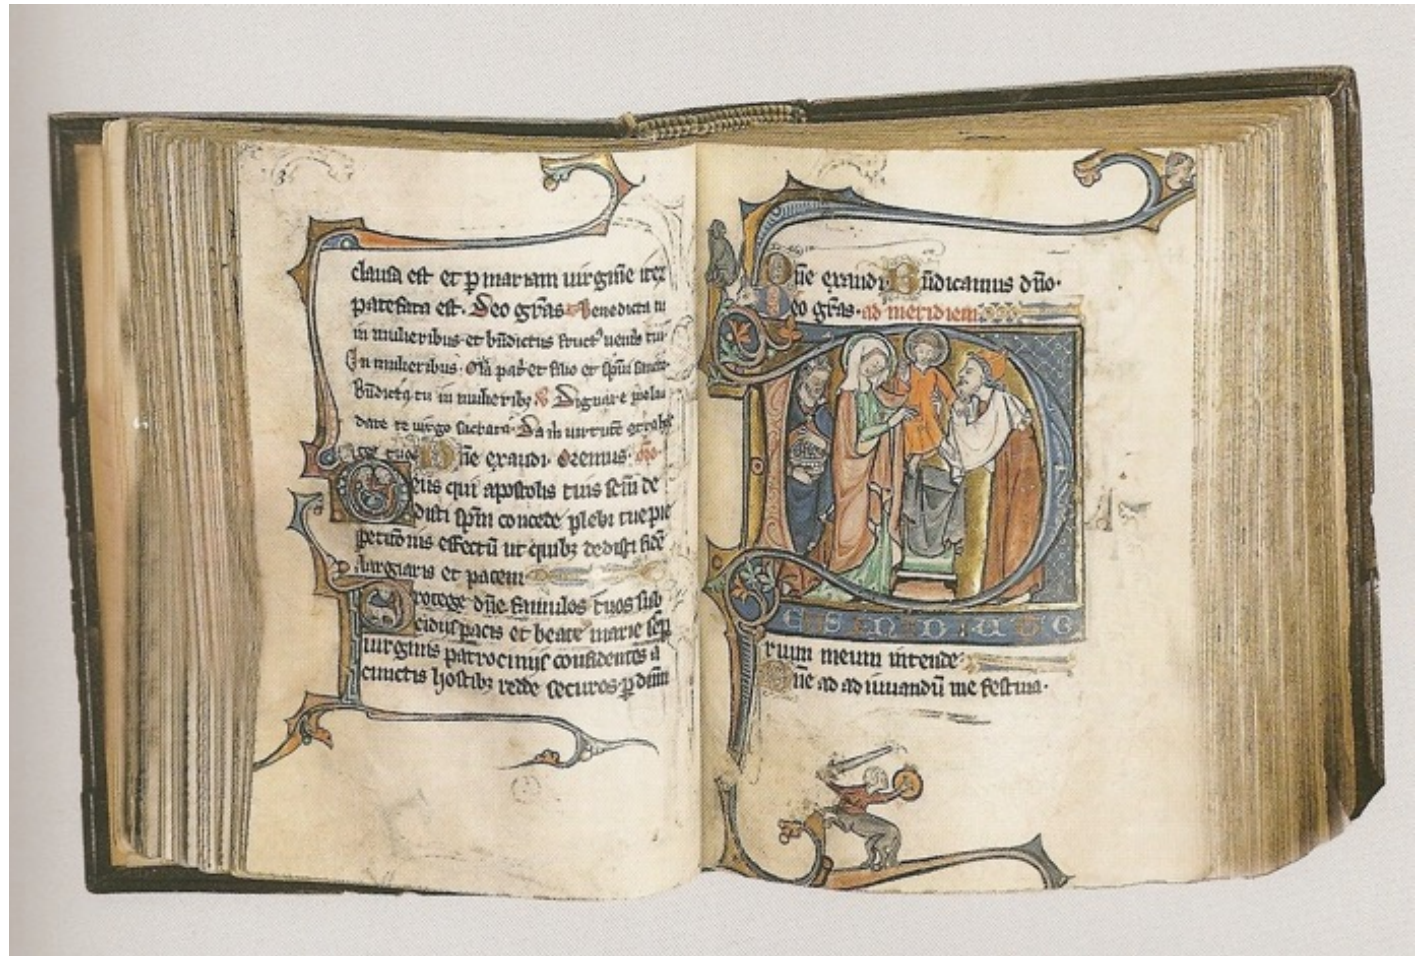 clausa est et p mariam uirgine iter
patefata est. Deo gras Benedicta tu
in mulieribus et bndictus fruct uentris tui
In mulieribus. Gla patri et filio et spui sancto
Bndicta tu in mulierib; Dignare me lau
dare te uirgo sacrata. Da m uirtute
tuos Dne exaudi. Oremus.
Deus qui apostolis tuis scm de
disti spm concede plebi tue pie
petitionis effectu ut quib; dedisti fide
largiaris et pacem
Protege dne famulos tuos sub
sidiis pacis et beate marie sep
uirginis patrocinijs confidentes a
cunctis hostib; redde securos. p dnm
Dne exaudi. Bndicamus dno.
Deo gras. ad meridiem
DEUS IN ADIUTO
rium meum intende
Dne ad adiuuandu me festina.